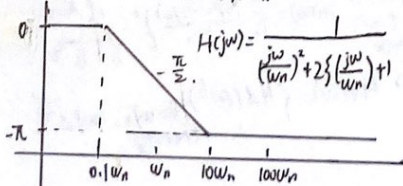 0
H(jω)= 1
(jω/ωn)²+2ξ(jω/ωn)+1
-π/2.
-π
0.1ωn ωn 10ωn 100ωn